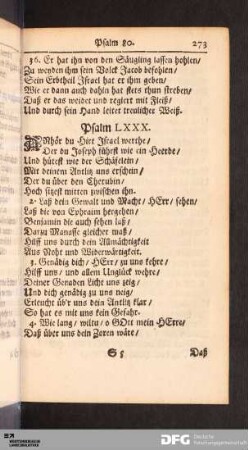 Psalm 80. 273
36. Er hat ihn von den Säugling lassen hohlen/
Zu weyden ihm sein Volck Jacob befohlen/
Sein Erbtheil Israel hat er ihm geben/
Wie er dann auch dahin hat stets thun streben/
Daß er das weidet und regiert mit Fleiß/
Und durch sein Hand leitet treulicher Weiß.
Psalm LXXX.
ANhör du Hirt Israel werthe/
Der du Joseph führst wie ein Heerde/
Und hütest wie der Schäfelein/
Mit deinem Antlitz uns erschein/
Der du über den Cherubin/
Hoch sitzest mitten zwischen ihn.
2. Laß dein Gewalt und Macht/ HErr/ sehen/
Laß die von Ephraim hergehen/
Benjamin die auch sehen laß/
Darzu Manasse gleicher maß/
Hilff uns durch dein Allmächtigkeit
Aus Noht und Widerwärtigkeit.
3. Genädig dich/ HErr/ zu uns kehre/
Hilff uns/ und allem Unglück wehre/
Deiner Genaden Licht uns zeig/
Und dich genädig zu uns neig/
Erleucht üb'r uns dein Antlitz klar/
So hat es mit uns kein Gefahr.
4. Wie lang/ wiltu/ o GOtt mein HErre/
Daß über uns dein Zoren wäre/
S 5 Daß
DFG